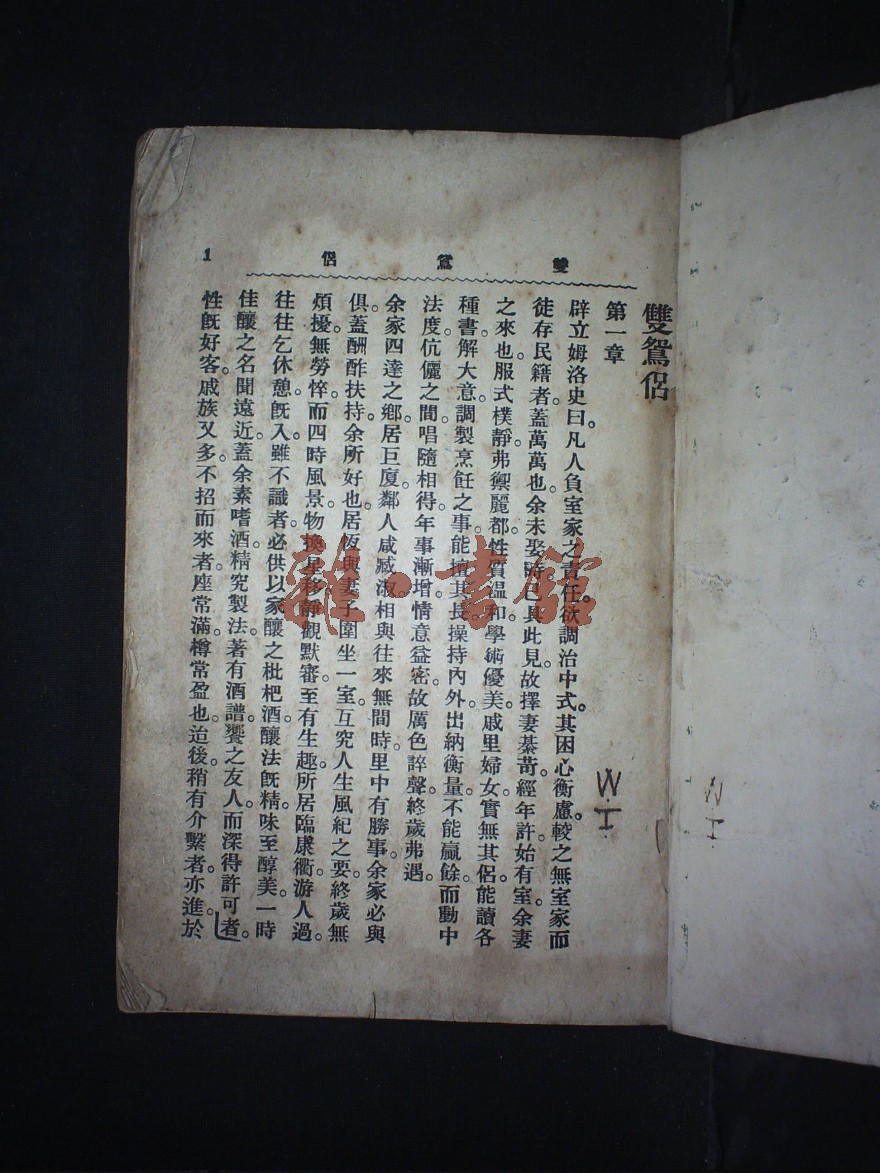 雙鴛侶
1
雙鴛侶
第一章
辟立姆洛史曰。凡人負室家之責任。欲調治中式。其困心衡慮。較之無室家而
徒存民籍者。蓋萬萬也。余未娶時已具此見。故擇妻綦苛。經年許始有室。余妻
之來也。服式樸靜。弗禦麗都。性質溫和。學術優美。戚里婦女。實無其侶。能讀各
種書。解大意。調製烹飪之事。能擅其長。操持內外。出納衡量。不能贏餘。而動中
法度。伉儷之間。唱隨相得。年事漸增。情意益密。故厲色誶聲。終歲弗遇。
余家四達之鄉。居巨廈。鄰人咸臧淑。相與往來無間時。里中有勝事。余家必與
俱。蓋酬酢扶持。余所好也。居恆與妻子圍坐一室。互究人生風紀之要。終歲無
煩擾。無勞悴。而四時風景。物換星移。靜觀默審。至有生趣。所居臨康衢。游人過
往。往乞休憩。既入雖不識者。必供以家釀之枇杷酒。釀法既精。味至醇美。一時
佳釀之名聞遠近。蓋余素嗜酒。精究製法。著有酒譜。饗之友人。而深得許可者。
性既好客。戚族又多。不招而來者。座常滿。樽常盈也。迨後稍有介繫者。亦進於
雜·書館
W·I·
W·I·